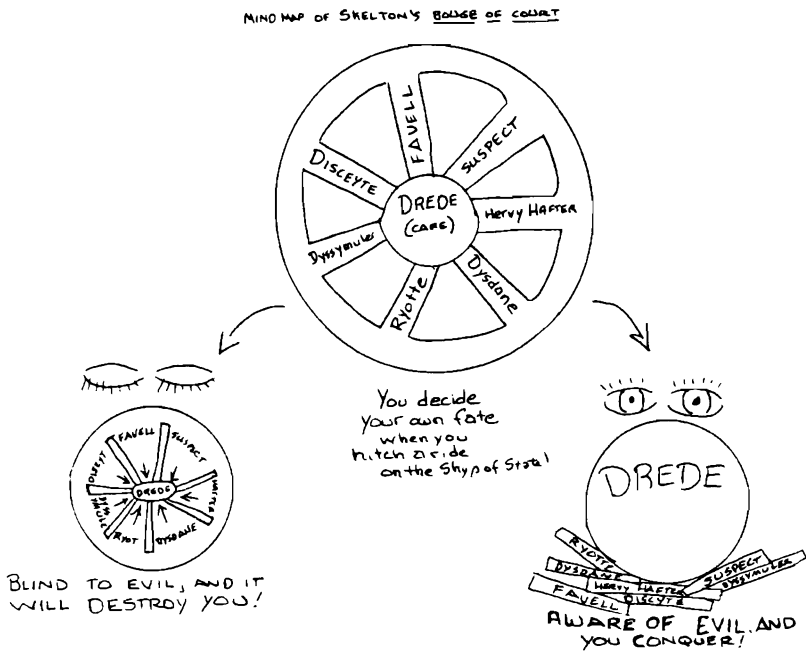 MIND MAP OF SKELTON'S BOUGE OF COURT
FAVELL
SUSPECT
DISCEYTE
DREDE
(CARE)
HERVY HAFTER
Dyssymuler
Ryotte
Dysdane
You decide
your own fate
when you
hitch a ride
on the Shyp of State!
FAVELL
SUSPECT
DREDE
HAFTER
RYOT
DYSDANE
BLIND TO EVIL, AND IT
WILL DESTROY YOU!
DREDE
RYOTTE
DYSDANE
HERVY HAFTER
SUSPECT
DYSSYMULER
FAVELL
DISCYTE
AWARE OF EVIL AND
YOU CONQUER!